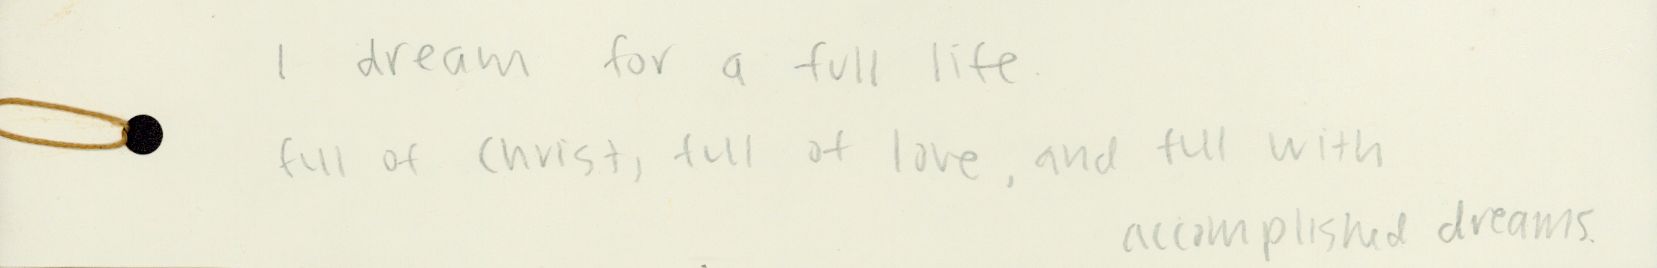 I dream for a full life.
full of Christ, full of love, and full with
accomplished dreams.